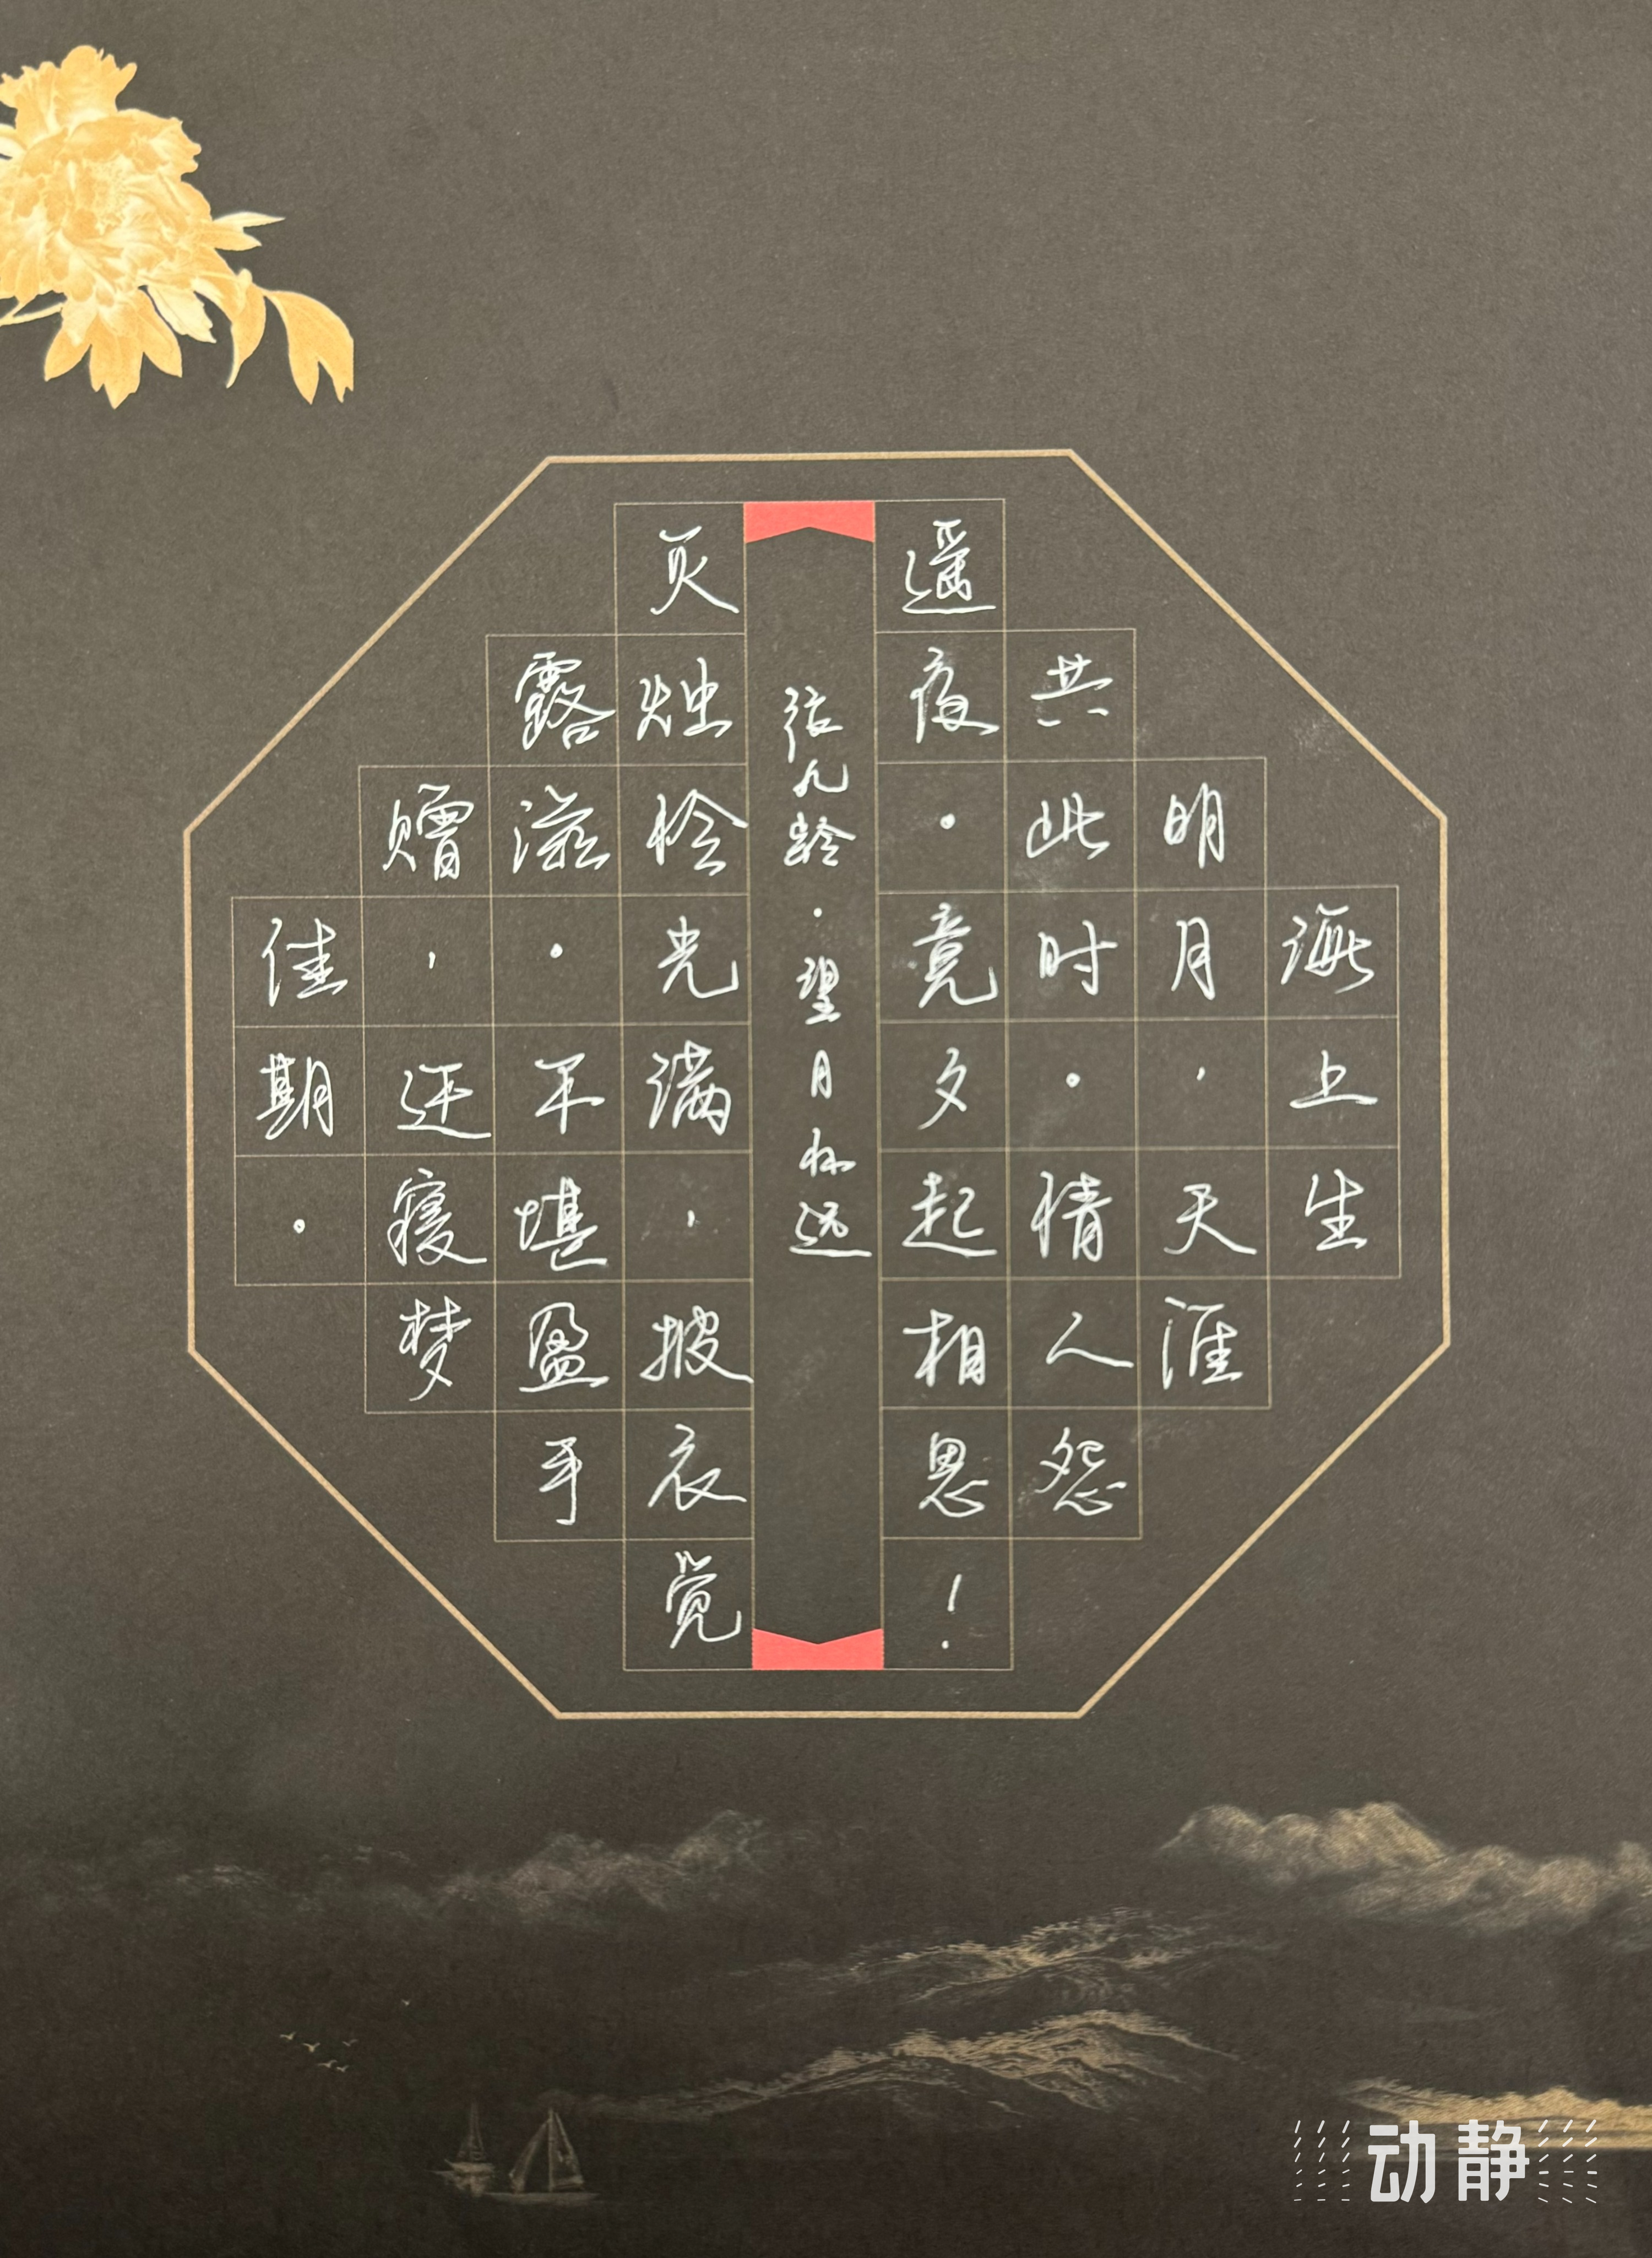 海上生
明月，天涯
共此时。情人怨
遥夜。竟夕起相思！
张九龄·望月怀远
灭烛怜光满，披衣觉
露滋。不堪盈手
赠，还寝梦
佳期。
动静